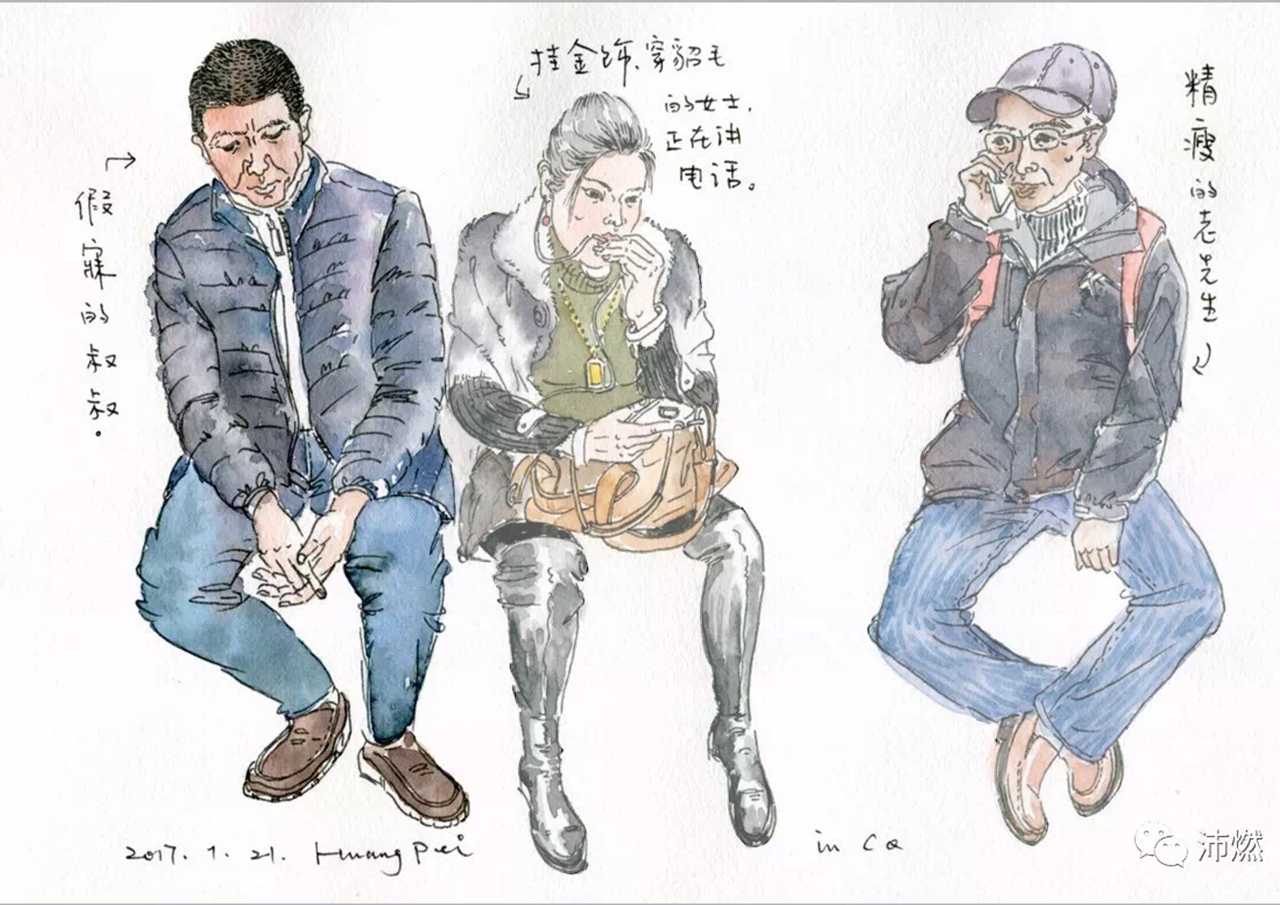 假寐的叔叔.
挂金饰、穿貂毛
的女士,
正在讲
电话。
精瘦的老先生
2017. 1. 21. Huang Pei
in CQ
沛燃